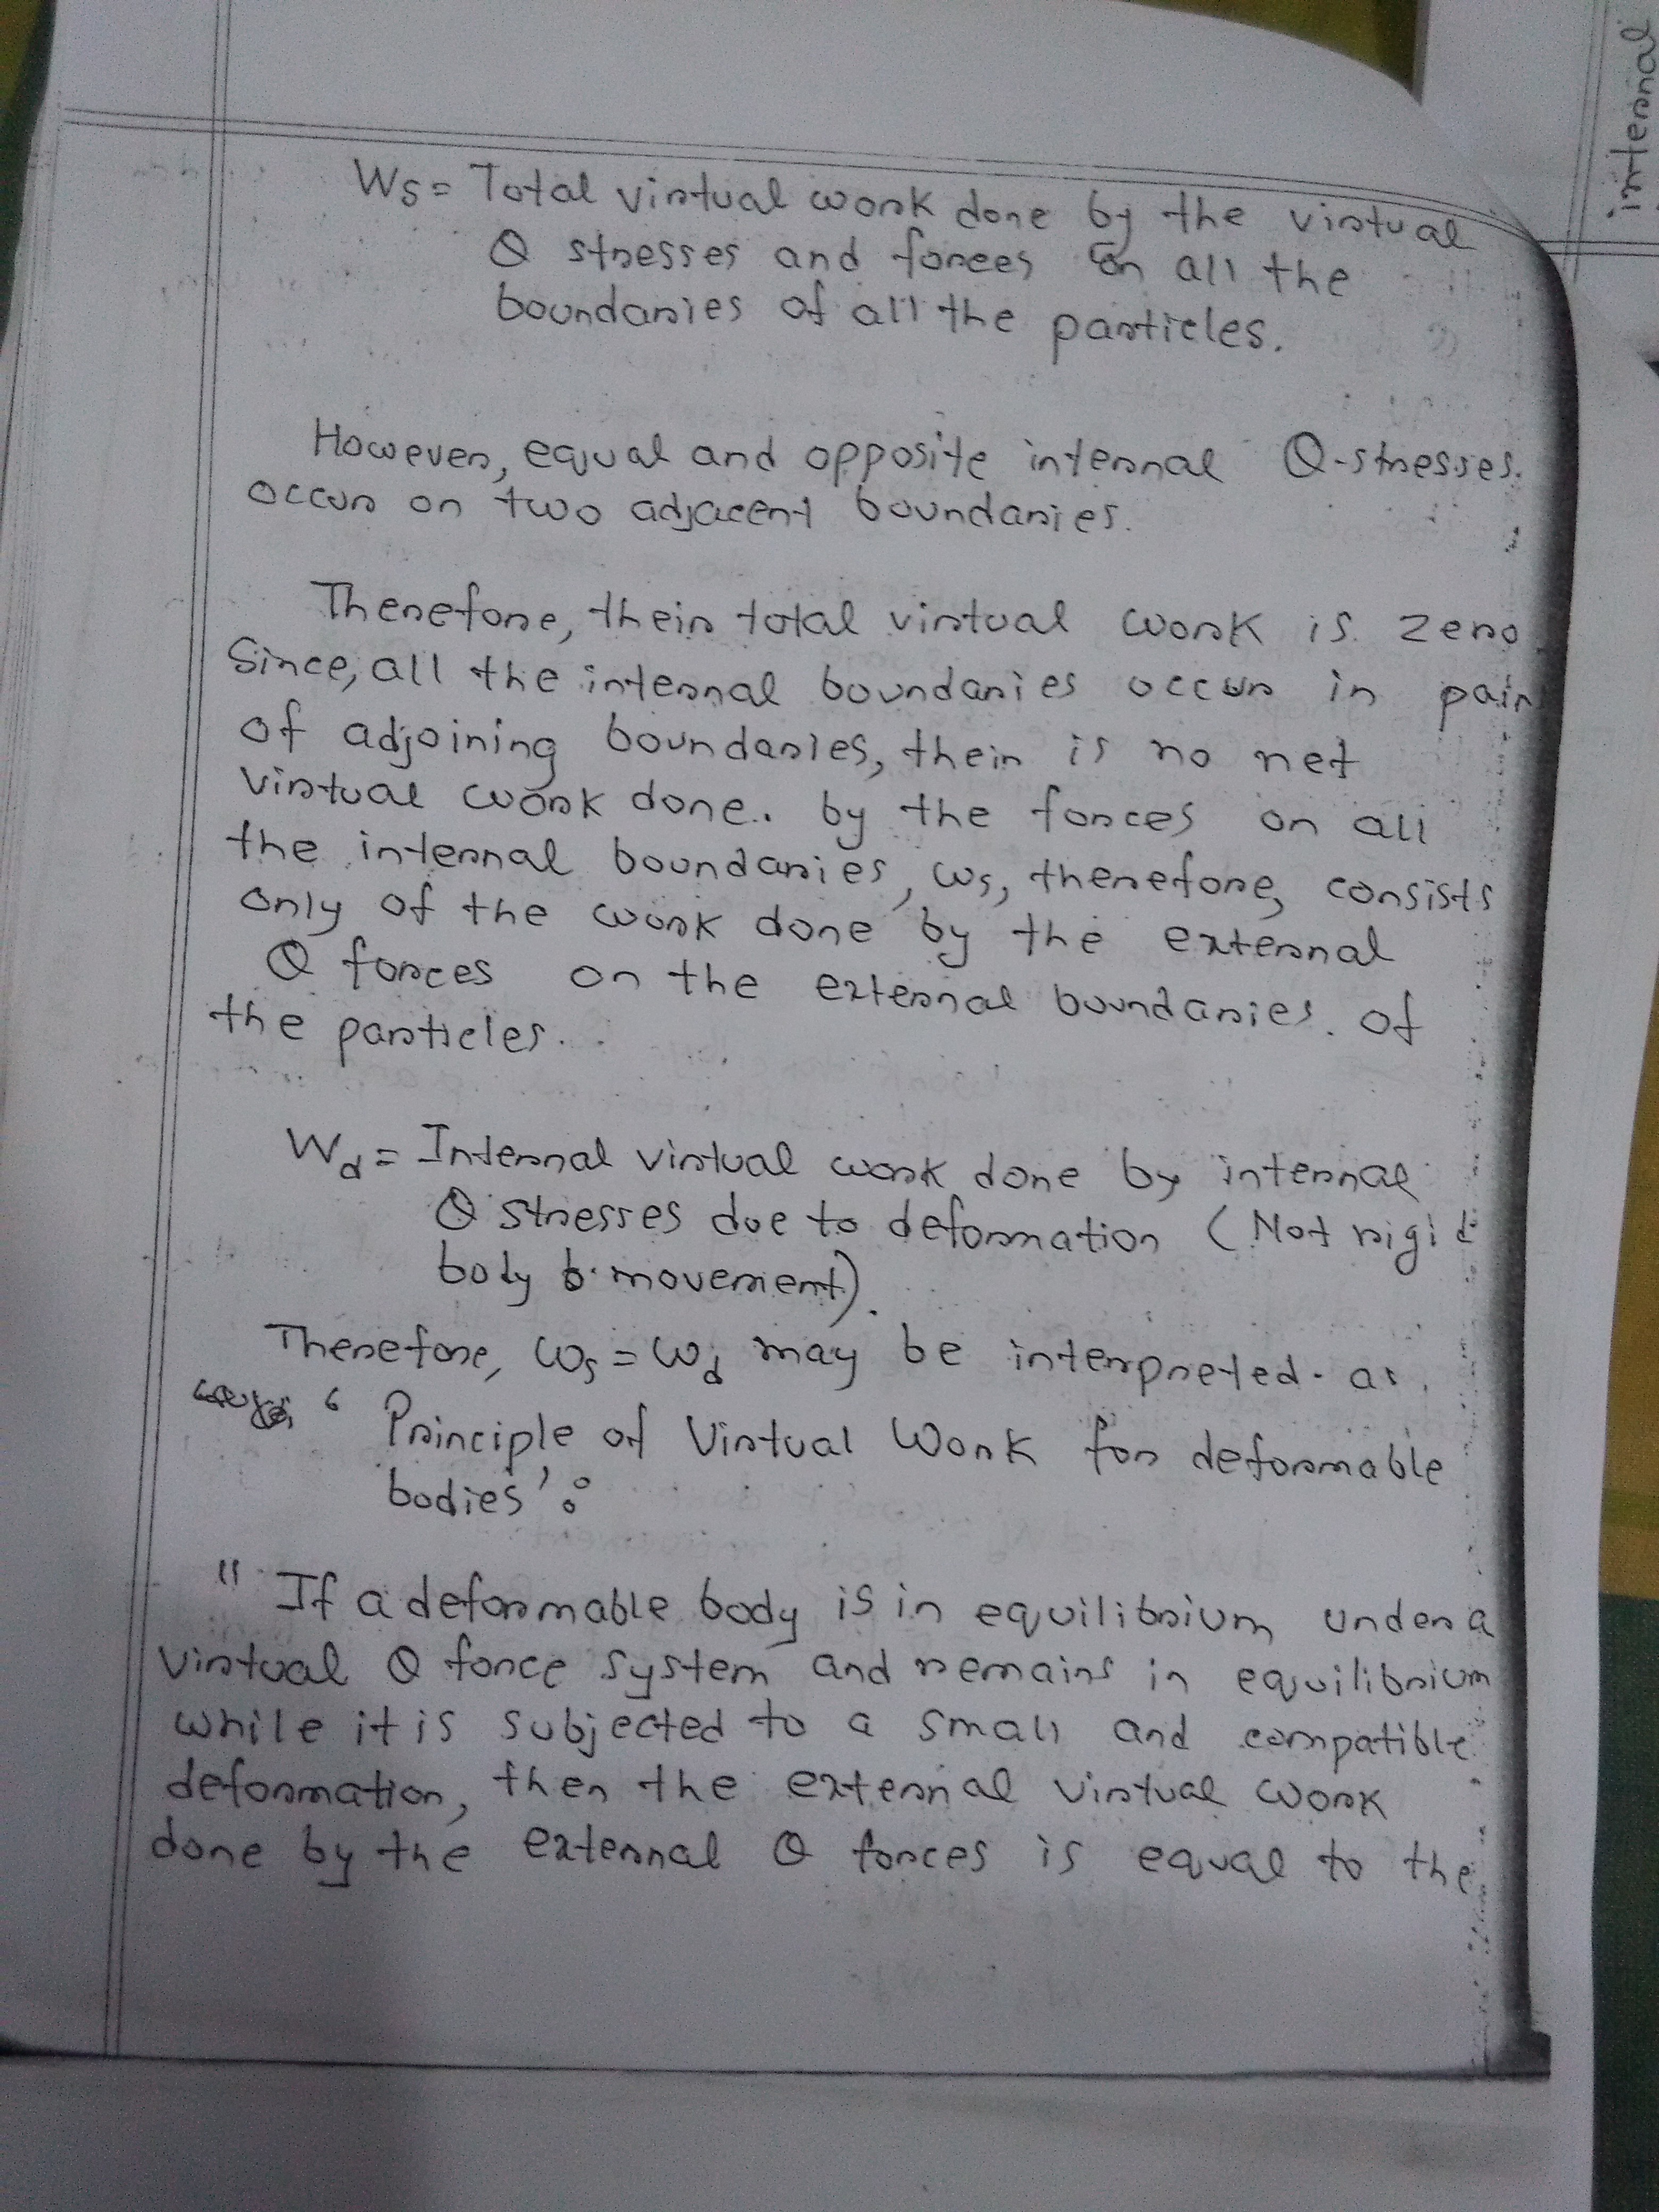 Ws = Total virtual work done by the virtual
Q stresses and forces on all the
boundaries of all the particles.
However, equal and opposite internal Q-stresses.
occur on two adjacent boundaries.
Therefore, their total virtual work is zero.
Since, all the internal boundaries occur in pair
of adjoining boundaries, their is no net
virtual work done. by the forces on all
the internal boundaries, ws, therefore, consists
only of the work done by the external
Q forces on the external boundaries. of
the particles.
Wd = Internal virtual work done by internal
Q stresses due to deformation (Not rigid
body movement).
Therefore, ws = wd may be interpreted as
' Principle of Virtual Work for deformable
bodies':
" If a deformable body is in equilibrium under a
virtual Q force system and remains in equilibrium
while it is subjected to a small and compatible
deformation, then the external virtual work
done by the external Q forces is equal to the
internal